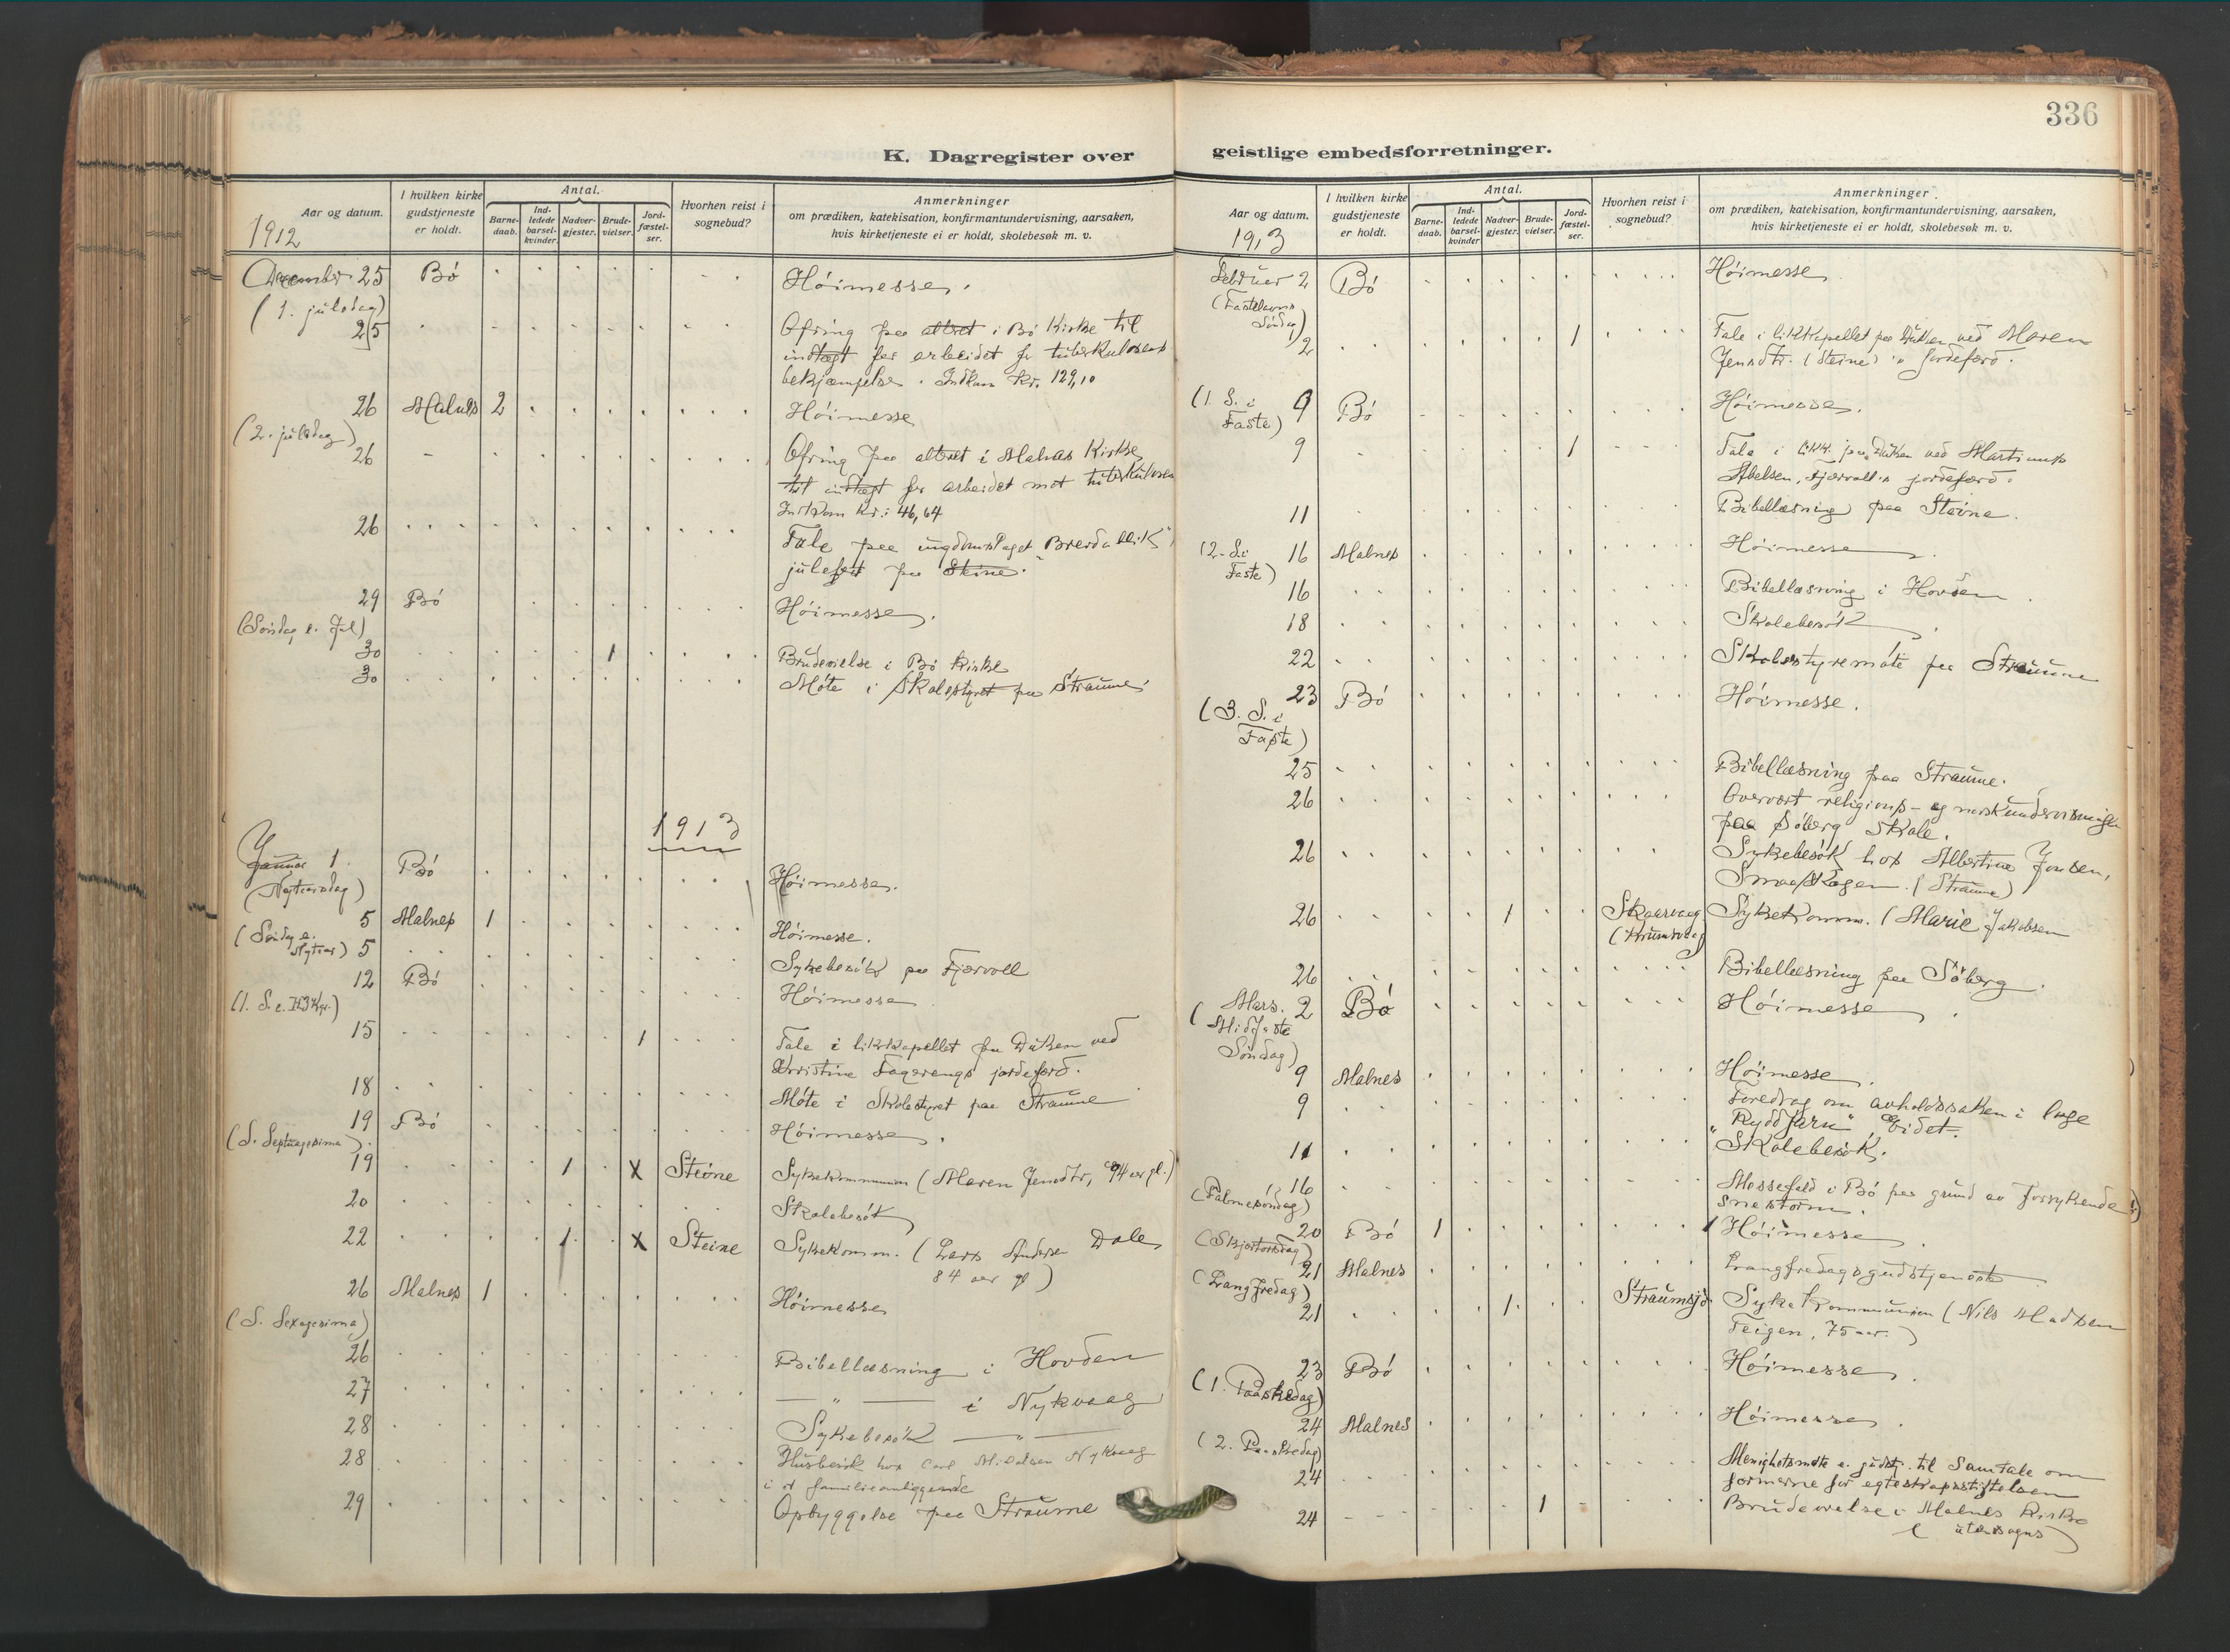 336
K. Dagregister over
geistlige embedsforretninger.
Aar og datum.
1912
I hvilken kirke
gudstjeneste
er holdt.
Antal.
Barne-
daab.
Ind-
ledede
barsel-
kvinder.
Nadver-
gjester.
Brude-
vielser.
Jord-
fæstel-
ser.
Hvorhen reist i
sognebud?
Anmerkninger
om prædiken, katekisation, konfirmantundervisning, aarsaken,
hvis kirketjeneste ei er holdt, skolebesøk m. v.
December 25 Bö Höimesse.
(1. juledag)
25 Ofring paa altret i Bö Kirke til
indtægt for arbeidet for tuberkulosens
bekjæmpelse. Indkom Kr. 129,10
26 Malnes 2 Höimesse
(2. juledag)
26 Ofring paa altret i Malnes Kirke
til indtægt for arbeidet mot tuberkulosen
Indkom Kr.: 46,64
26 Tale paa ungdomslaget "Breidablik"
julefest paa Steine.
29 Bö Höimesse.
(Söndag e. Jul)
30 1 Brudevielse i Bö Kirke
30 Möte i Skolestyret paa Straume
1913
Januar 1 Bö Höimesse.
(Nytaarsdag)
5 Malnes 1 Höimesse.
(Söndag e.
Nytaar) 5 Sykebesök paa Fjærvoll
12 Bö Höimesse
(1. S. e. H3Kgr.)
15 1 Tale i likkapellet paa Duken ved
Kristine Fagerengs jordeferd.
18 Möte i Skolestyret paa Straume
19 Bö Höimesse.
(S. Septuagesima)
19 1 X Steine Sykekommunion (Maren Jensdtr, 94 aar gl.)
20 Skolebesök
22 1 X Steine Sykekomm. (Lars Andersen Dale,
84 aar gl)
26 Malnes 1 Höimesse
(S. Sexagesima)
26 Bibellæsning i Hovden
27 — " — i Nykvaag
28 Sykebesök — " —
28 Husbesök hos Carl Mikalsen Nykvaag
i et familieanliggende
29 Opbyggelse paa Straume
Aar og datum.
1913
I hvilken kirke
gudstjeneste
er holdt.
Antal.
Barne-
daab.
Ind-
ledede
barsel-
kvinder
Nadver-
gjester.
Brude-
vielser.
Jord-
fæstel-
ser.
Hvorhen reist i
sognebud?
Anmerkninger
om prædiken, katekisation, konfirmantundervisning, aarsaken,
hvis kirketjeneste ei er holdt, skolebesøk m. v.
Februar 2 Bö Höimesse
(Fastelavns
Söndag)
2 1 Tale i likkapellet paa Duken ved Maren
Jensdtr. (Steine)'s jordeferd.
(1. S. i 9 Bö Höimesse.
Faste)
9 1 Tale i likk. paa Duken ved Martinus
Abelsen, Fjærvoll's jordeferd.
11 Bibellæsning paa Steine.
(2. S. i 16 Malnes Höimesse.
Faste)
16 Bibellæsning i Hovden.
18 Skolebesök
22 Skolestyremöte paa Straume
23 Bö Höimesse.
(3. S. i
Faste)
25 Bibellæsning paa Straume.
26 Overvært religions- og norskundervisningen
paa Söberg Skole.
26 Sykebesök hos Albertine Jensen,
Smaaskogen. (Straume)
26 1 Skaarvaag Sykekomm. (Marie Jakobsen
26 Bibellæsning paa Söberg.
Mars. 2 Bö Höimesse.
(Midfaste
Söndag)
9 Malnes Höimesse.
9 Foredrag om avholdssaken i loge
"Rydd Jarn" Eidet.
11 Skolebesök.
16 Messefald i Bö paa grund av forrykende
(Palmesöndag) snestorm.
20 Bö 1 Höimesse.
(Skjærtorsdag)
21 Malnes Langfredagsgudstjeneste
(Langfredag)
21 1 Straumsjö Sykekommunion (Nils Madsen
Teigen, 75 aar.)
23 Bö Höimesse.
(1. Paaskedag)
24 Malnes Höimesse.
(2. Paaskedag)
24 Menighetsmöte e. gudstj. til Samtale om
formerne for egteskapsstiftelsen
24 1 Brudevielse i Malnes Kirke
(utensogns)